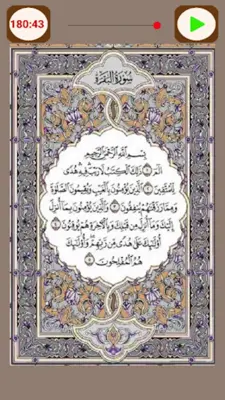 180:43
سُورَةُ البَقَرَةِ
بِسْمِ اللَّهِ الرَّحْمَٰنِ الرَّحِيمِ
الٓمٓ ١ ذَٰلِكَ الْكِتَٰبُ لَا رَيْبَ فِيهِ هُدًى
لِّلْمُتَّقِينَ ٢ الَّذِينَ يُؤْمِنُونَ بِالْغَيْبِ وَيُقِيمُونَ الصَّلَوٰةَ
وَمِمَّا رَزَقْنَٰهُمْ يُنفِقُونَ ٣ وَالَّذِينَ يُؤْمِنُونَ بِمَا أُنزِلَ
إِلَيْكَ وَمَا أُنزِلَ مِن قَبْلِكَ وَبِالْآخِرَةِ هُمْ يُوقِنُونَ ٤
أُو۟لَٰٓئِكَ عَلَىٰ هُدًى مِّن رَّبِّهِمْ وَأُو۟لَٰٓئِكَ
هُمُ الْمُفْلِحُونَ ٥